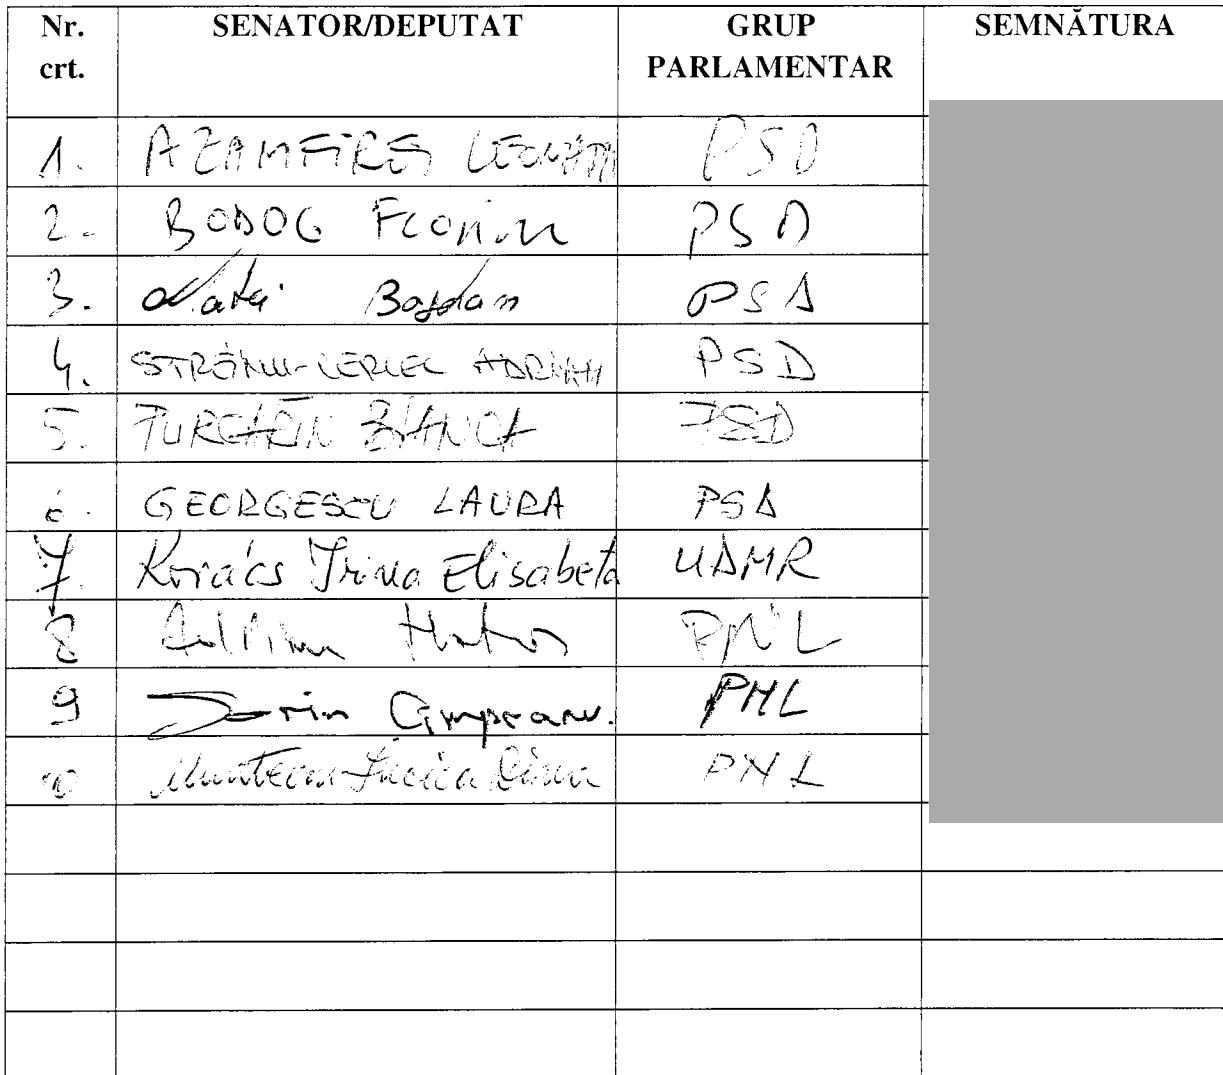 Nr. crt. SENATOR/DEPUTAT GRUP PARLAMENTAR SEMNĂTURA
1. AZAMFIREI PSD
2. BODOG Florian PSD
3. Matei Bogdan PSD
4. STREINU-CERCEL ADRIAN PSD
5. PURCĂRIN BIANCA PSD
6. GEORGESCU LAURA PSD
7. Kovács Irina Elisabeta UDMR
8 PNL
9 Sorin Cîmpeanu. PNL
10 PNL